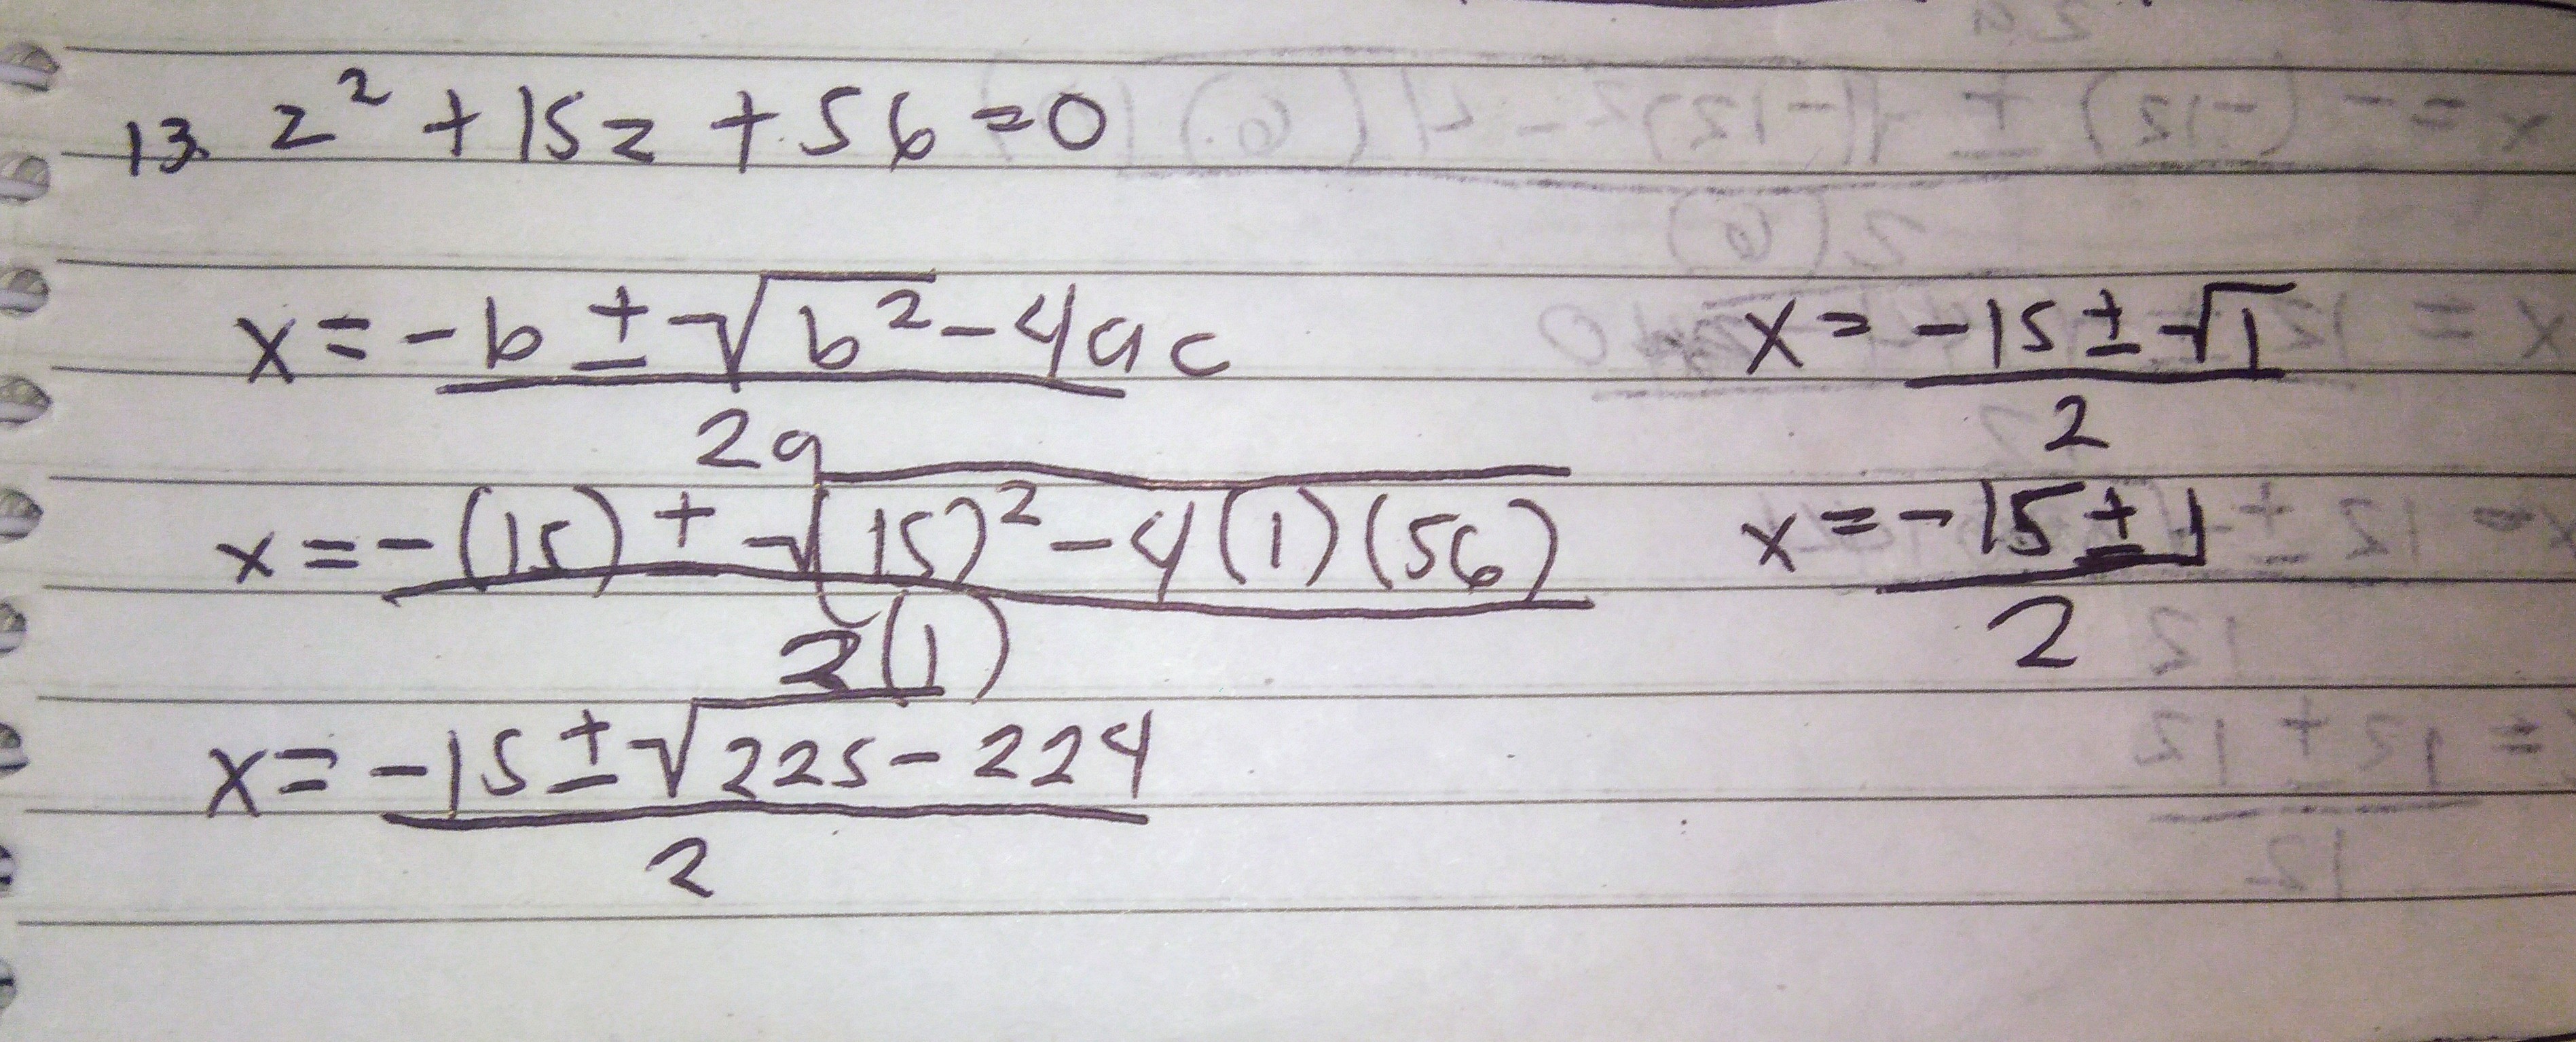 13. z² + 15z + 56 = 0
x = -b ± √b² - 4ac
2a
x = -(15) ± √(15)² - 4(1)(56)
2(1)
x = -15 ± √225 - 224
2
x = -15 ± √1
2
x = -15 ± 1
2